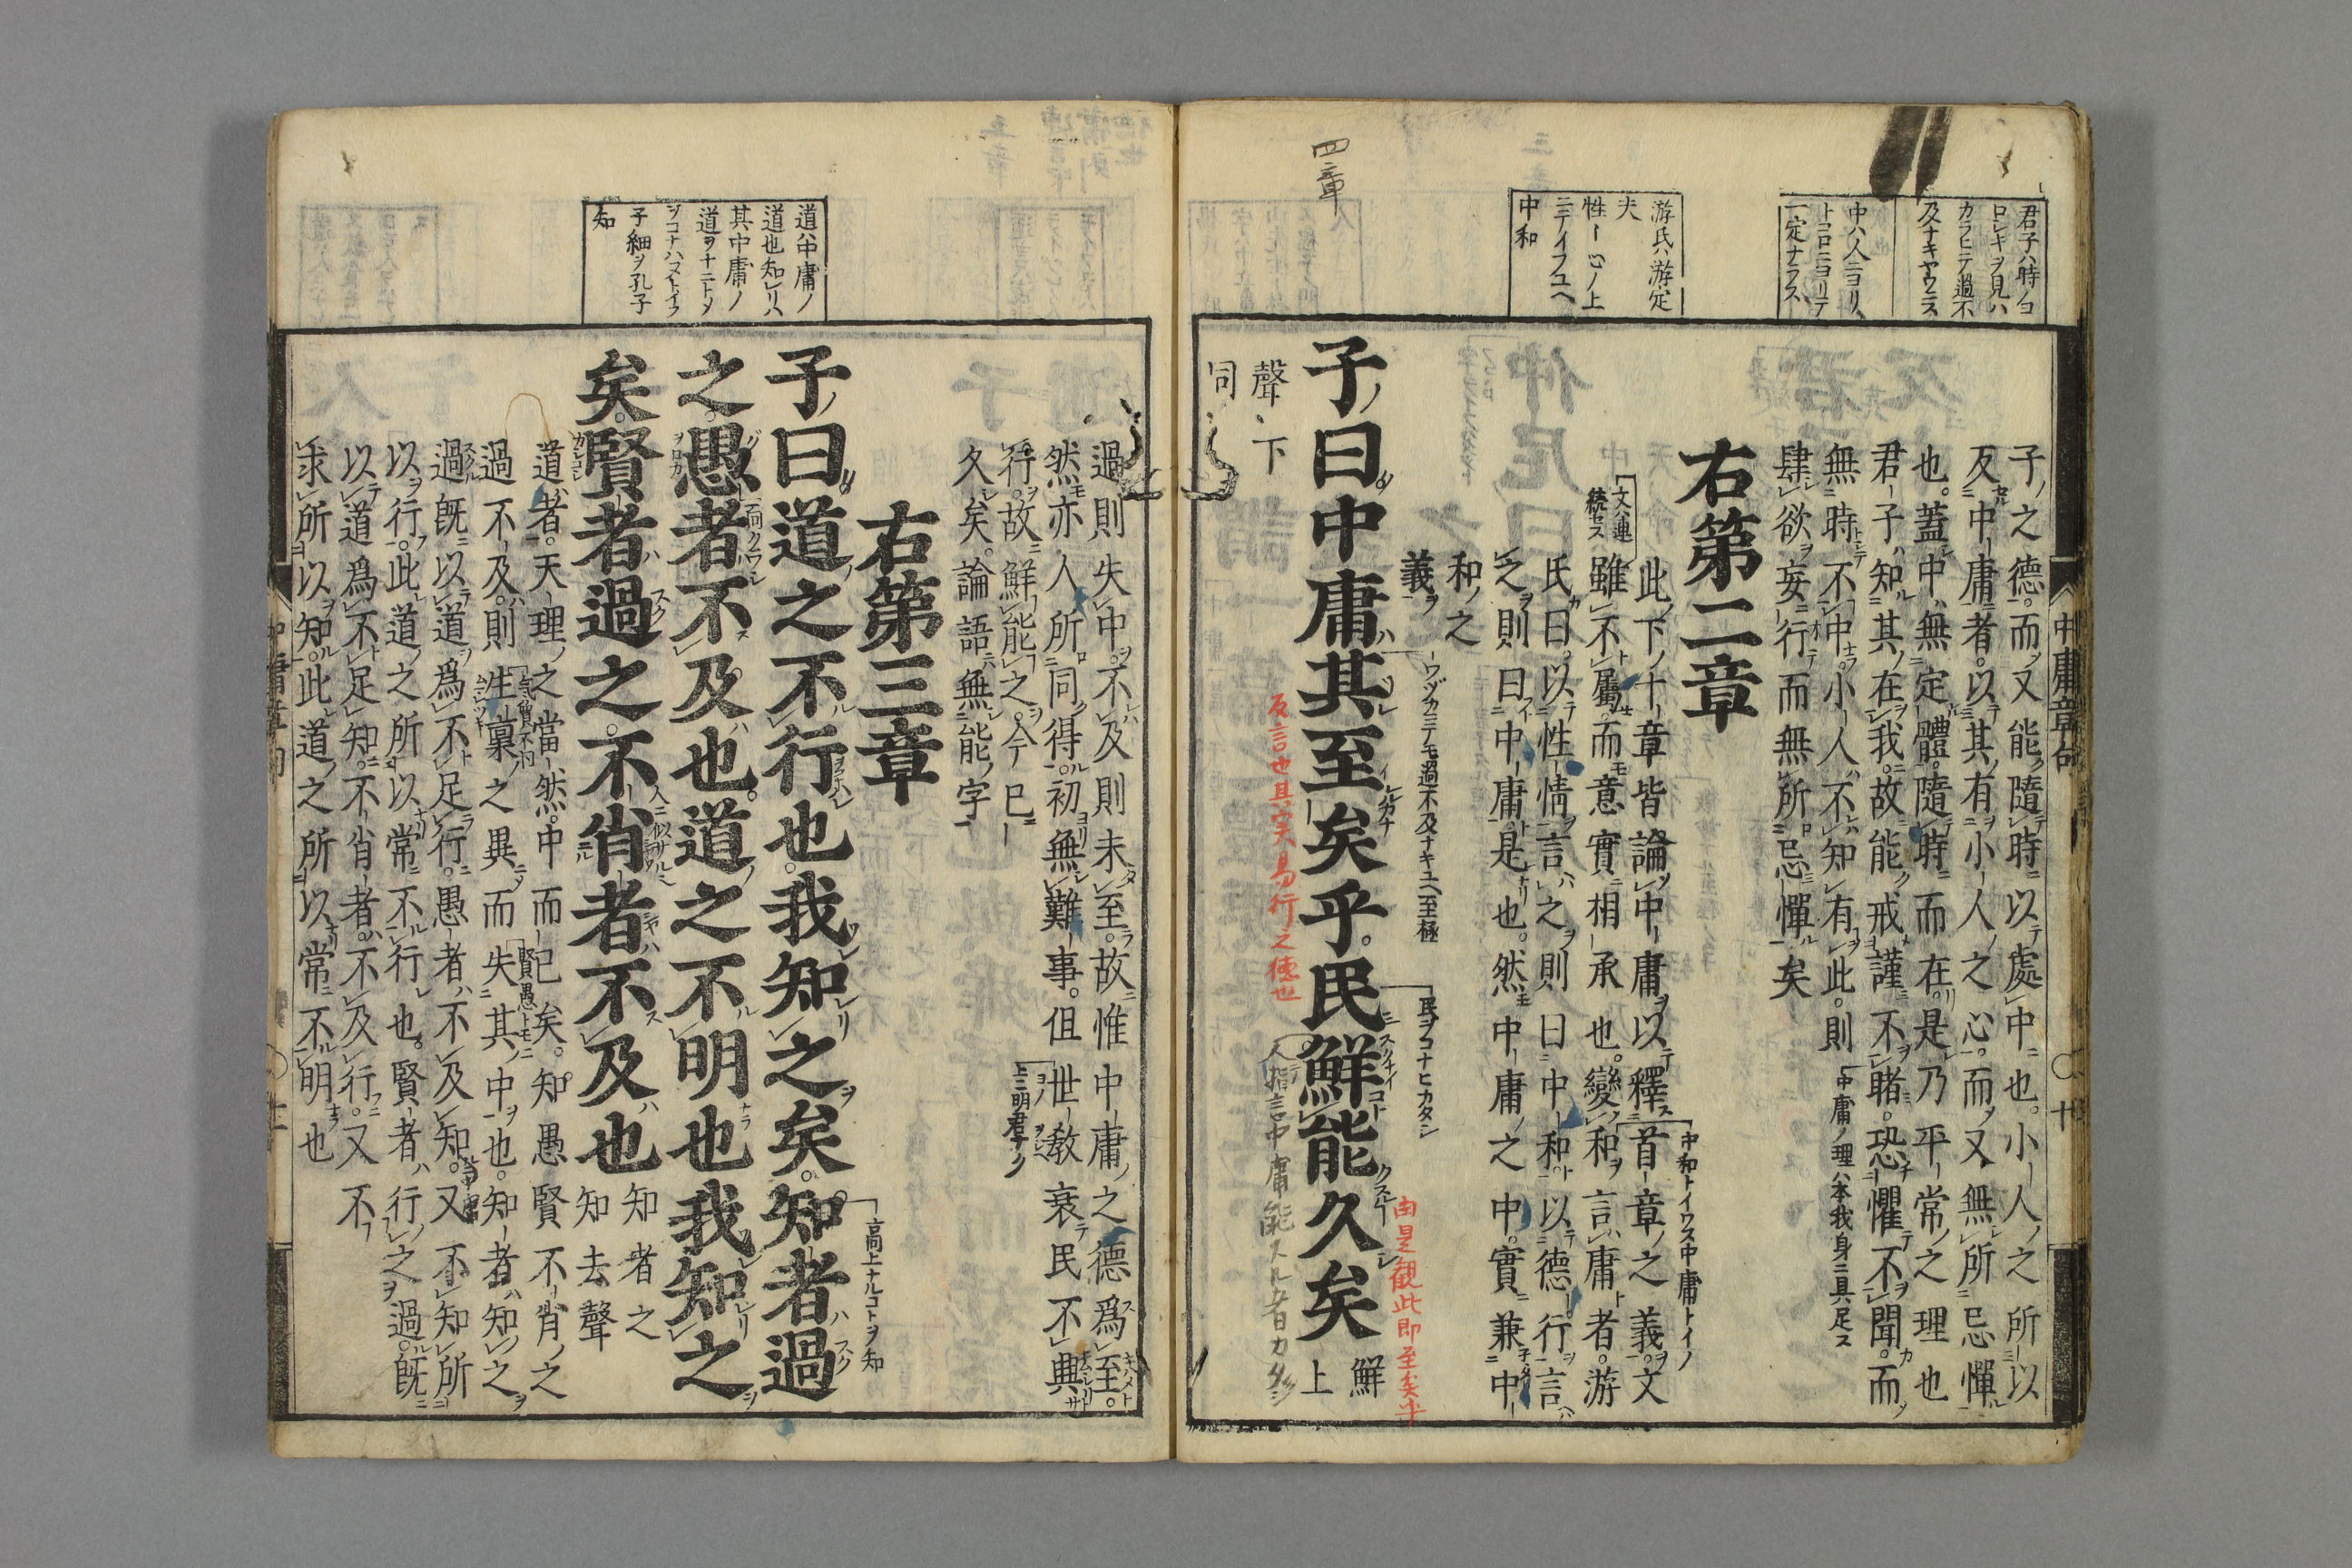 君子ハ時ノヨ
ロシキヲ見ハ
カラヒテ過不
及ナキヤウニス
中ハ人ニヨリ
トコロニヨリテ
一定ナラス
游氏ハ游定
夫
性ー心ノ上
ニテイフユヘ
中和
四章
子之德而又能隨時以處中也小人之所以
反中庸者以其有小人之心而又無所忌憚
也蓋中無定體隨時而在是乃平常之理也
君子知其在我故能戒謹不睹恐懼不聞而
無時不中小人不知有此則
中庸ノ理ハ本我身ニ具足ス
肆欲妄行而無所忌憚矣
右第二章
中和トイワス中庸トイノ
此下十章皆論中庸以釋首章之義文
雖不屬而意實相承也變和言庸者游
氏曰以性情言之則曰中和以德行言
之則曰中庸是也然中庸之中實兼中
和之
義
ワヅカニテモ過不及ナキユヘ至極
民ヲコナヒカタシ
由是観此即至矣乎
子曰中庸其至矣乎民鮮能久矣
鮮
上
反言也其実易行之徳也
聲下
同
中庸章句
十
過則失中不及則未至故惟中庸之德爲至
然亦人所同得初無難事但世教衰民不興
行故鮮能之今已
久矣論語無能字
右第三章
高上ナルコトヲ知
子曰道之不行也我知之矣知者過
之愚者不及也道之不明也我知之
矣賢者過之不肖者不及也
知者之
知去聲
道者天理之當然中而已矣知愚賢不肖之
過不及則生稟之異而失其中也知者知之
過既以道爲不足行愚者不及知又不知所
以行此道之所以常不行也賢者行之過既
以道爲不足知不肖者不及行又不
求所以知此道之所以常不明也
道ハ中庸ノ
道也知レリハ
其中庸ノ
道ヲナニトメ
ヲコナハヌトイフ
子細ヲ孔子
知